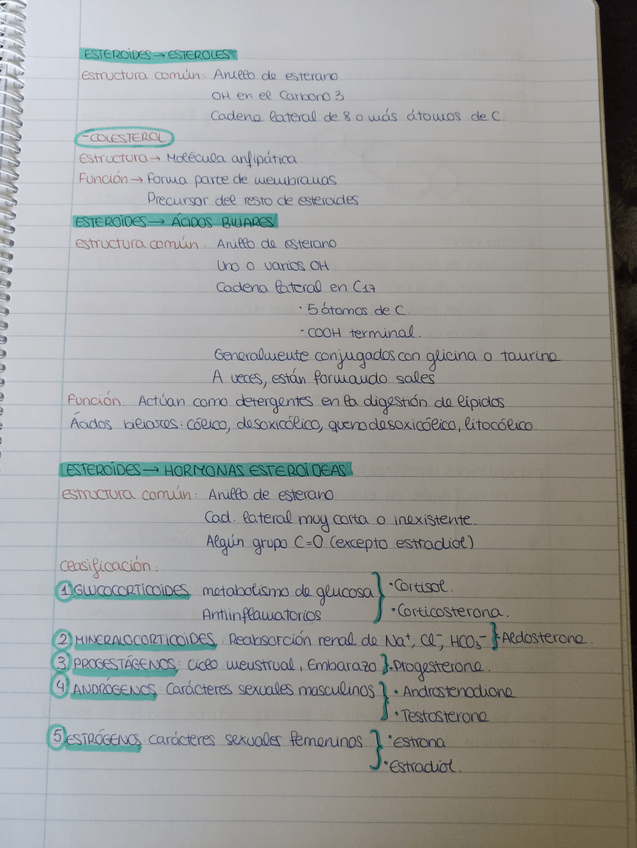 ESTEROIDES → ESTEROLES
estructura común: Anillo de esterano
OH en el Carbono 3
Cadena lateral de 8 o más átomos de C.
-COLESTEROL
estructura → Molécula anfipática
Función → Forma parte de membranas
Precursor del resto de esteroides
ESTEROIDES → ÁCIDOS BILIARES
estructura común: Anillo de esterano
Uno o varios OH
Cadena lateral en C17
· 5 átomos de C
· COOH terminal.
Generalmente conjugados con glicina o taurina
A veces, están formando sales
Función: Actúan como detergentes en la digestión de lípidos
Ácidos biliares: cólico, desoxicólico, quenodesoxicólico, litocólico
ESTEROIDES → HORMONAS ESTEROIDEAS
estructura común: Anillo de esterano
Cad. lateral muy corta o inexistente.
Algún grupo C=O (excepto estradiol)
Clasificación:
1 GLUCOCORTICOIDES metabolismo de glucosa } · Cortisol.
Antiinflamatorios · Corticosterona.
2 MINERALOCORTICOIDES. Reabsorción renal de Na⁺, Cl⁻, HCO₃⁻ } · Aldosterona.
3 PROGESTÁGENOS: ciclo menstrual, Embarazo } · Progesterona.
4 ANDRÓGENOS: Carácteres sexuales masculinos } · Androstenodiona
· Testosterona
5 ESTRÓGENOS carácteres sexuales femeninos } · estrona
· Estradiol.